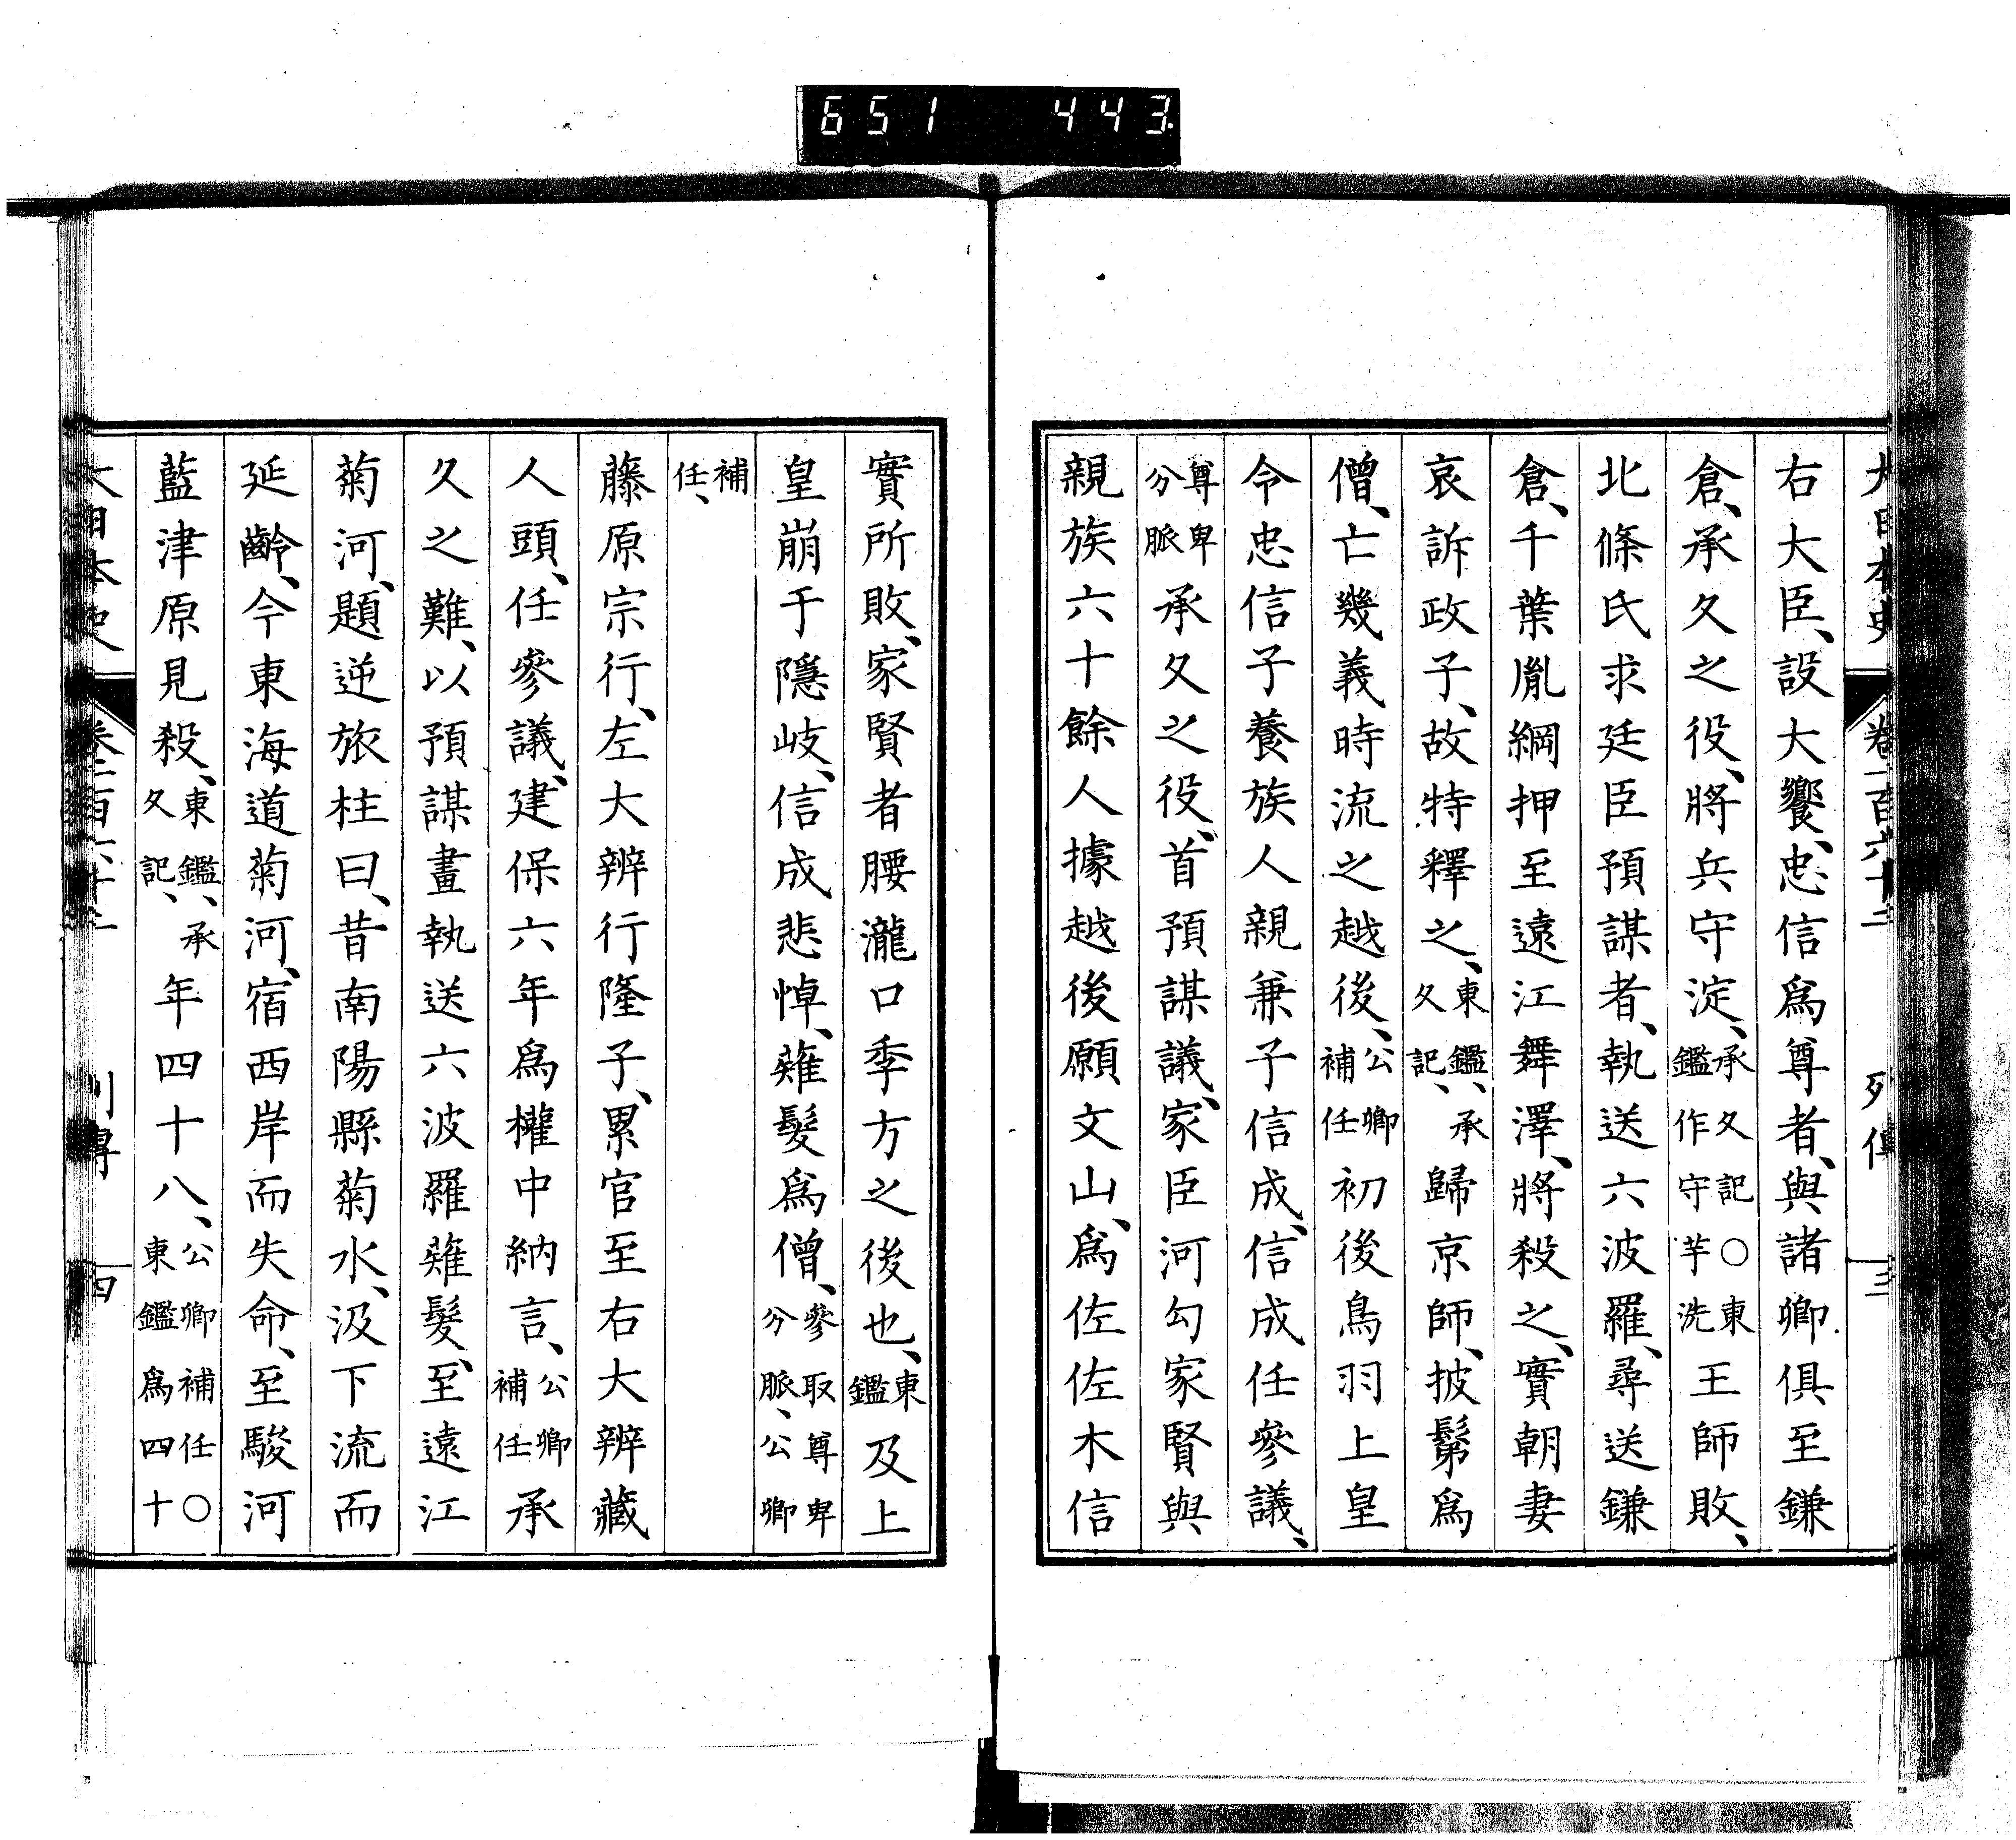 651 443
大日本史 卷一百六十三 列傳 三
右大臣、設大饗、忠信爲尊者、與諸卿俱至鎌
倉、承久之役、將兵守淀、承久記○東鑑作守芋洗王師敗、
北條氏求廷臣預謀者、執送六波羅、尋送鎌
倉、千葉胤綱押至遠江舞澤、將殺之、實朝妻
哀訴政子、故特釋之、東鑑、承久記、歸京師、披鬀爲
僧、亡幾義時流之越後、公卿補任初後鳥羽上皇
令忠信子養族人親兼子信成、信成任參議、
尊卑分脈承久之役、首預謀議、家臣河勾家賢與
親族六十餘人據越後願文山、爲佐佐木信
實所敗、家賢者腰瀧口季方之後也、東鑑及上
皇崩于隱岐、信成悲悼、薙髮爲僧、參取尊卑分脈、公卿
補任、
藤原宗行、左大辨行隆子、累官至右大辨藏
人頭、任參議、建保六年爲權中納言、公卿補任承
久之難、以預謀畫執送六波羅薙髮、至遠江
菊河、題逆旅柱曰、昔南陽縣菊水、汲下流而
延齡、今東海道菊河、宿西岸而失命、至駿河
藍津原見殺、東鑑、承久記、年四十八、公卿補任○東鑑爲四十
大日本史 卷一百六十三 列傳 四